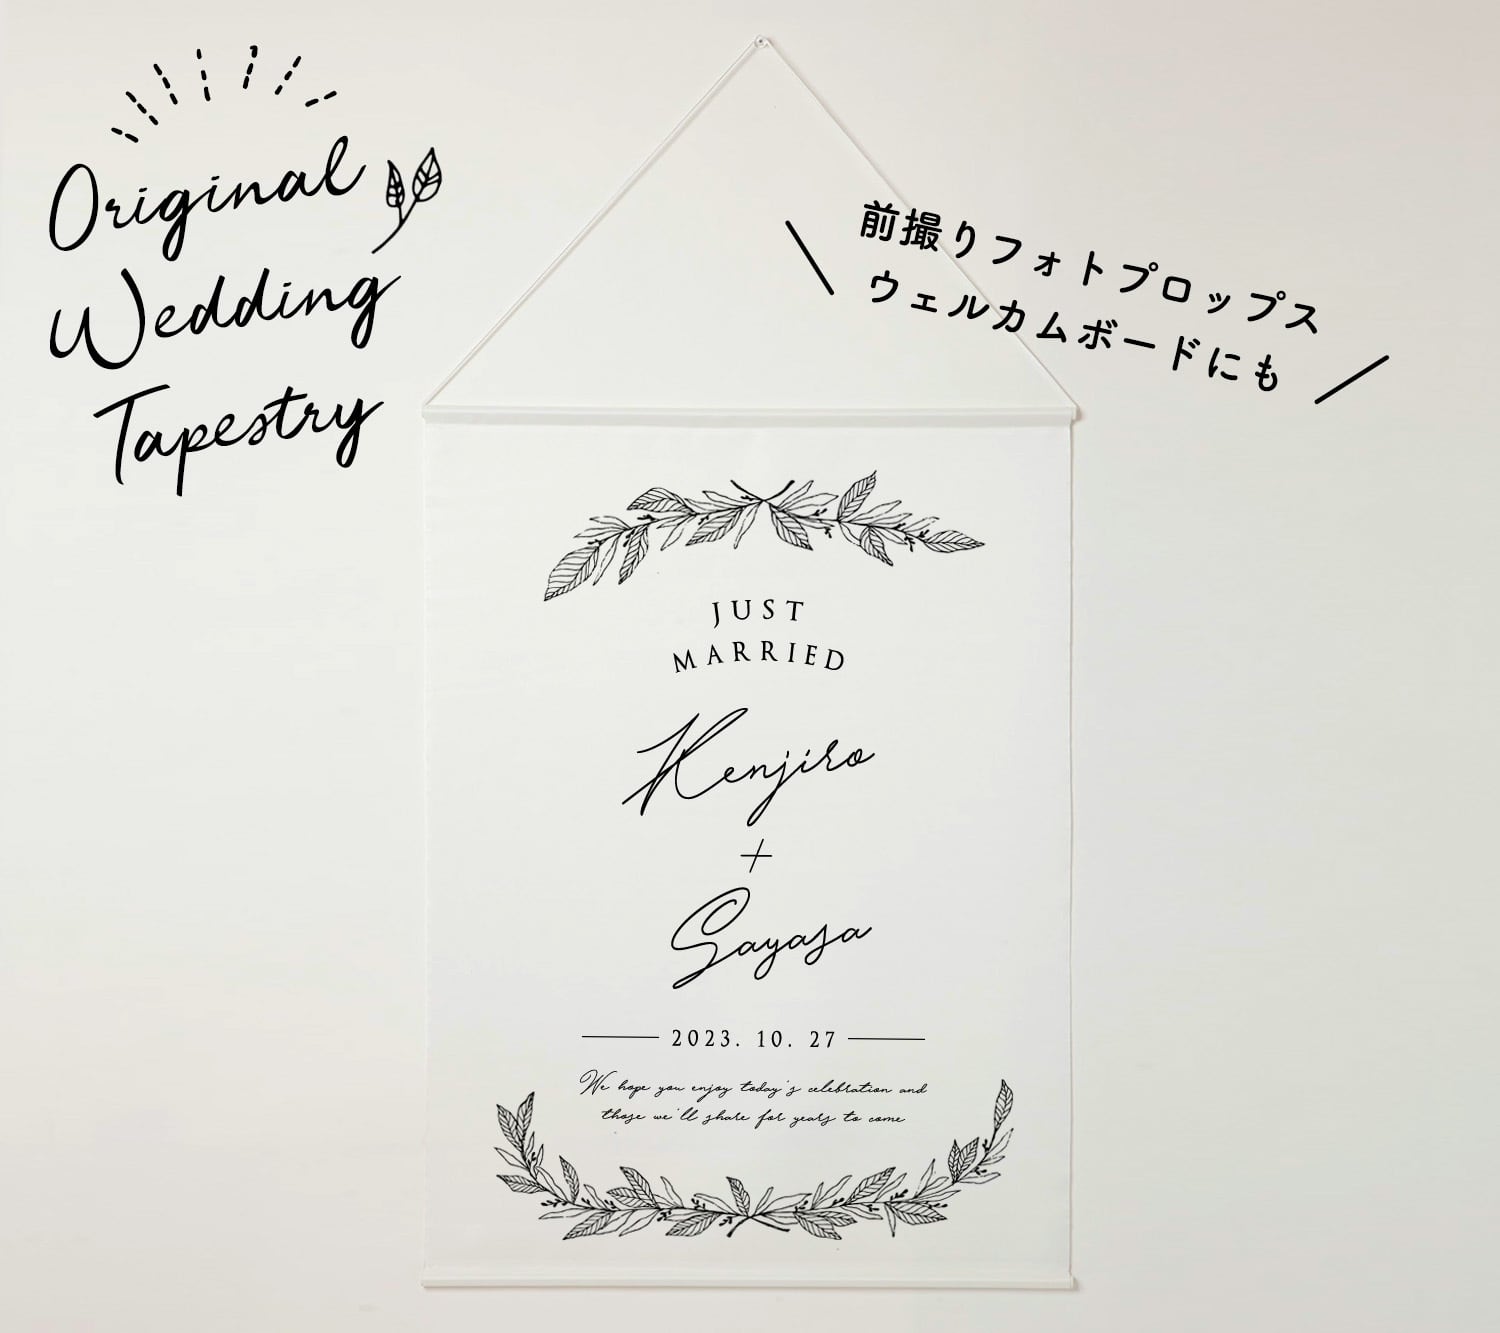 Original
Wedding
Tapestry
前撮りフォトプロップス
ウェルカムボードにも
JUST
MARRIED
Kenjiro
+
Sayasa
2023. 10. 27
We hope you enjoy today's celebration and
those we'll share for years to come